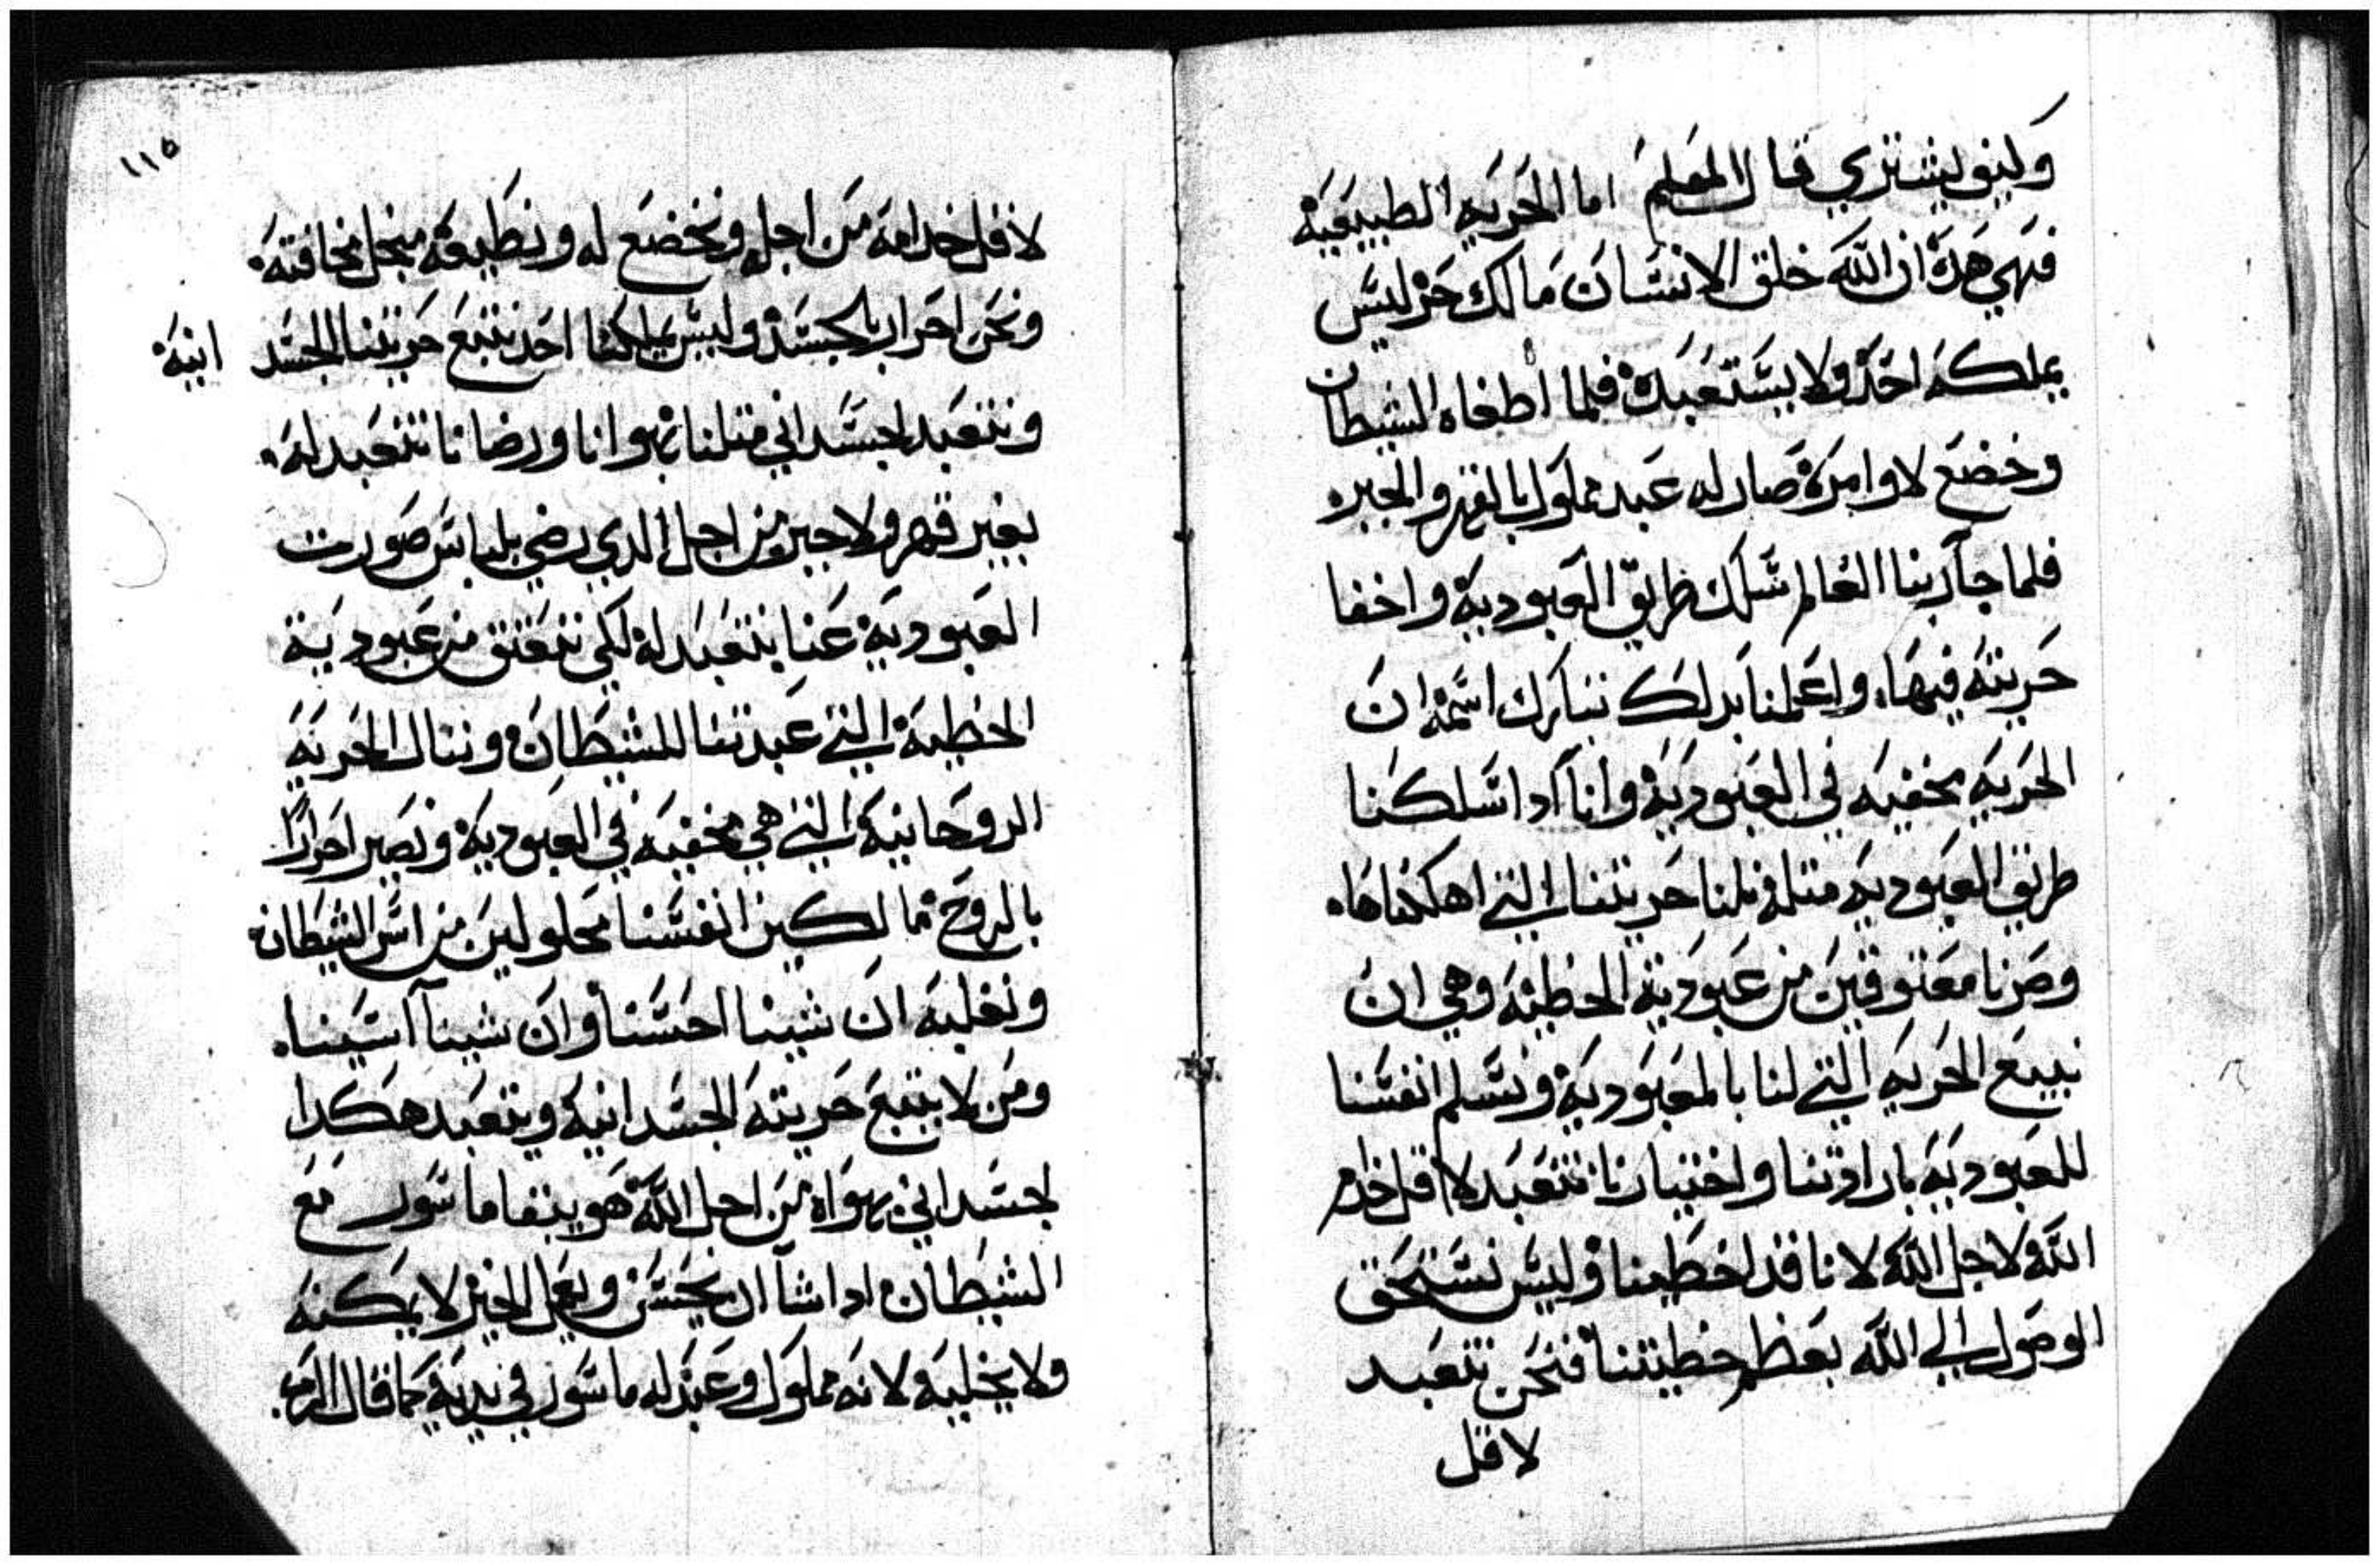 وكيف يشتري قال المعلم اما الحريه الطبيعية
فهي هده ان الله خلق الانسان مالك حر ليس
يملكه احد ولا يستعبده فلما اطغاه الشيطان
وخضع لاوامره صار له عبد مملوك بالقهر والجبره
فلما جآ ربنا العالم سلك طريق العبودية واخفا
حريته فيها، واعلمنا بدلك تبارك اسمه ان
الحريه مخفيه في العبودية وانا ادا سلكنا
طريق العبوديه مثله نلنا حريتنا التي اهلكناها،
وصرنا معتوقين من عبودية الخطيه وهي ان
نبيع الحريه التي لنا بالعبودية ونسلم انفسنا
للعبوديه بارادتنا واختيارنا نتعبد لاقل خدام
الله ولاجل الله لانا قد اخطينا وليس نستحق
الوصول الي الله بعظم خطيتنا فنحن نتعبد
لاقل
١١٥
لاقل خدامه من اجله ونخضع له ونطيعه منجل مخافته
ونحن احرار بالجسد وليس يملكنا احد نتبع حريتنا الجسد انية
ونتعبد لجسداني مثلنا بهوانا ورضانا نتعبد له.
بغير قهر ولا جبر من اجل الدي رضي بلباس صورت
العبودية عنا نتعبد له لكي نتعتق من عبودية
الخطية التي عبدتنا للشيطان وننال الحريه
الروحانية التي هي مخفيه في العبودية ونصير احرارا
بالروح مالكين انفسنا محلولين من اسر الشيطان
ونغلبه ان شينا احسنا وان شينا آسينا.
ومن لا يتبع حريته الجسدانية ويتعبد هكدا
لجسداني بهواه من اجل الله هو يبقا ماسور مع
الشيطان ادا شآ ان يحسن ويعمل الخير لا يمكنه
ولا يخليه لانه مملوك وعبد له ماسور في يديه كما قال الرب